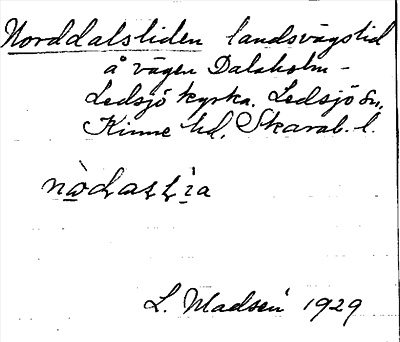 Norddalsliden landsvägslid
å vägen Dalaholm -
Ledsjö kyrka. Ledsjö sn,
Kinne hd, Skarab. l.
L. Madsén 1929